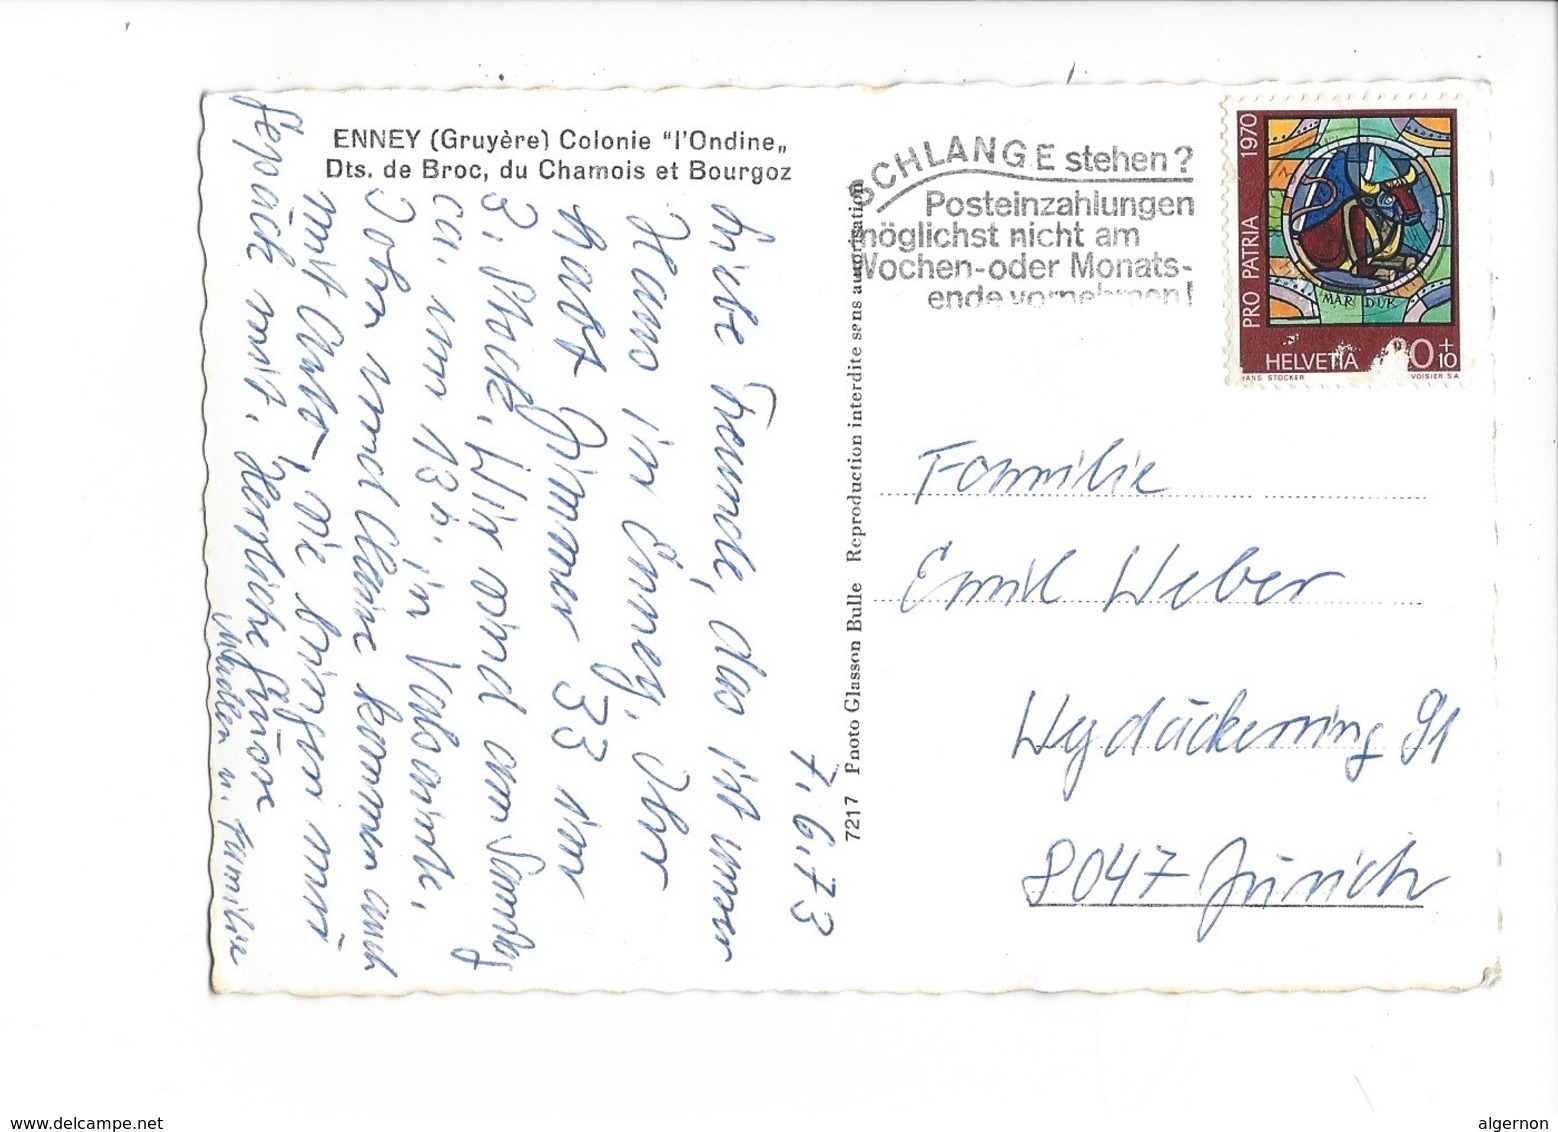 ENNEY (Gruyère) Colonie "l'Ondine„
Dts. de Broc, du Chamois et Bourgoz
7.6.73
Liebe Freunde, das ist unser
Haus in Enney. Ihr
habt Zimmer 33 im
3. Stock. Wir sind am Samstag
ca. um 13h. in
John und Claire kommen auch
mit Auto, sie bringen mein
Gepäck mit. Herzliche Grüsse
Madlen u. Familie
7217 Photo Glasson Bulle Reproduction interdite sans autorisation
SCHLANGE stehen?
Posteinzahlungen
möglichst nicht am
Wochen-oder Monats-
ende vornehmen!
PRO PATRIA 1970
MARDUK
HELVETIA
+10
HANS STOCKER
COURVOISIER S.A.
Familie
Emil Weber
Wydäckerring 91
8047 Zürich
www.delcampe.net
algernon